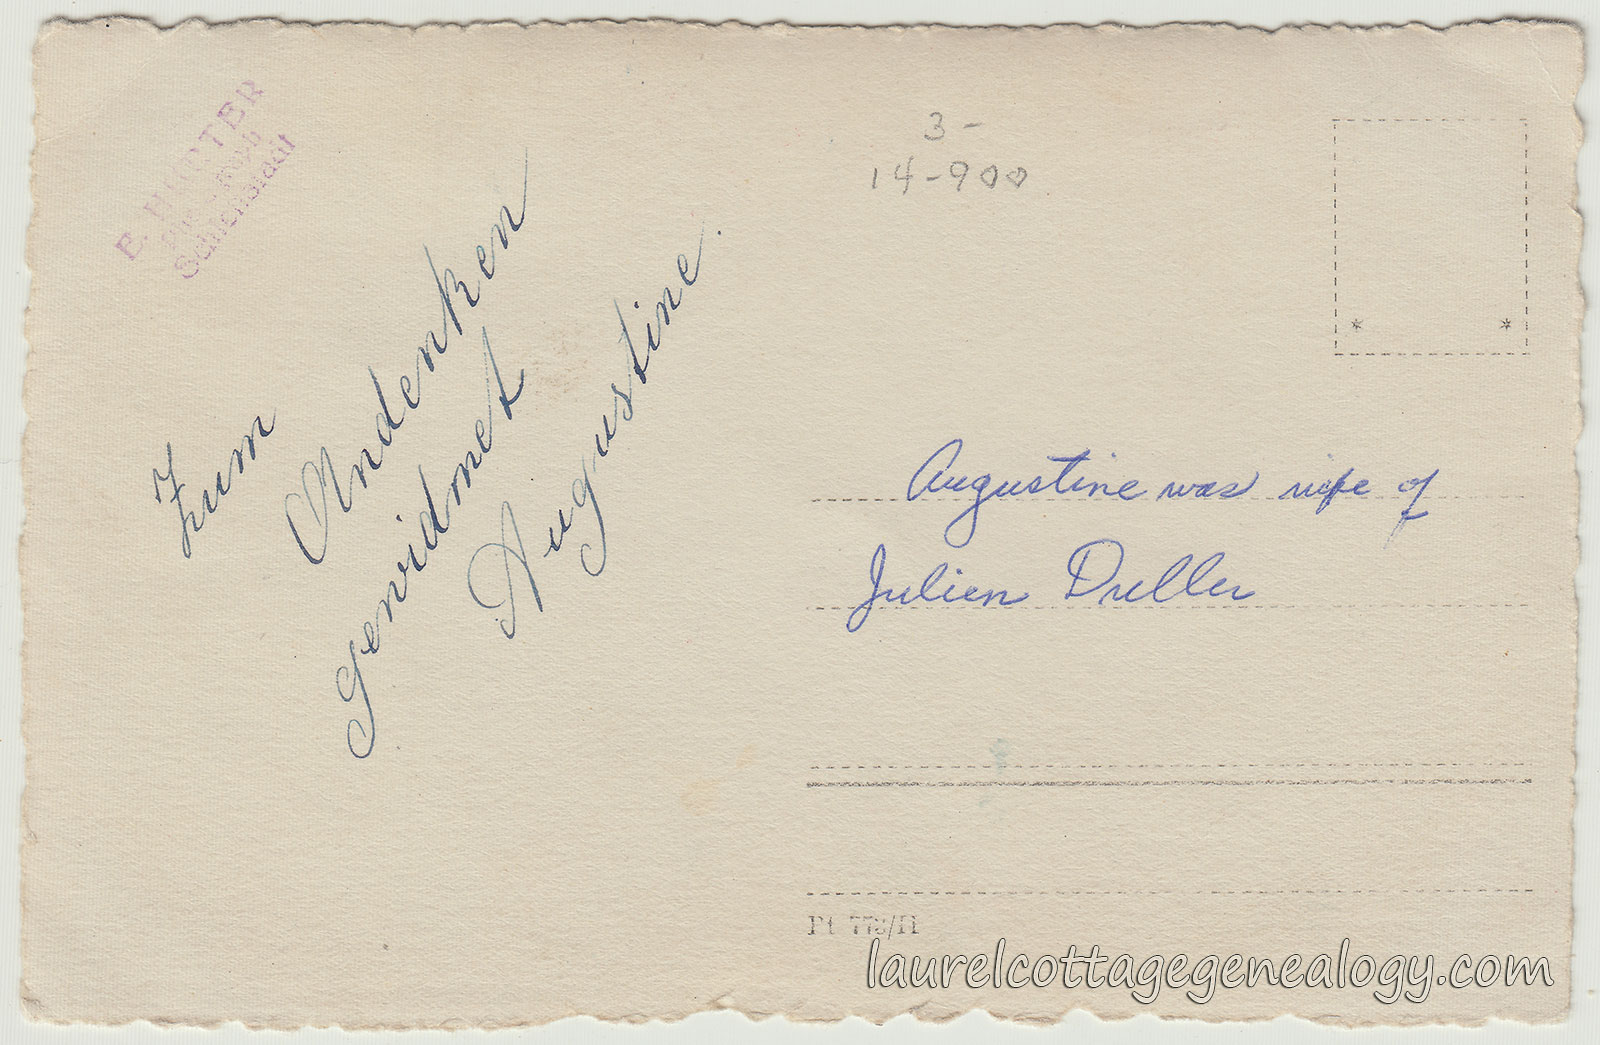 E. HURTER
Schlettstadt
Zum
Andenken
gewidmet
Augustine.
3-
14-900
Augustine was wife of
Julien Duller
Pt 778/II
laurelcottagegenealogy.com